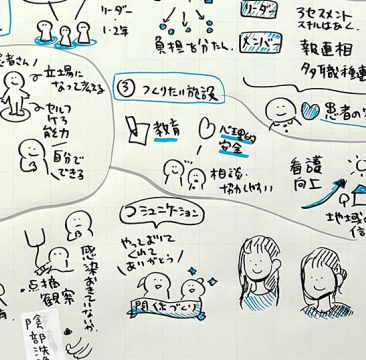 リーダー
1・2年
負担を分たん
リーダー
メンバー
アセスメント
スキルはもと、
報連相
多職種連
患者さん!
立場に
なって考える
セルフ
ケア
能力
自分で
できる
③ つくりたい施設
教育
心理的
安全
相談・
協力しやすい
患者の
看護
向上
地域の
信
コミュニケーション
やっておいて
くれて
ありがとう!
関係づくり
感染おきていないか
・点検
観察
陰部洗浄